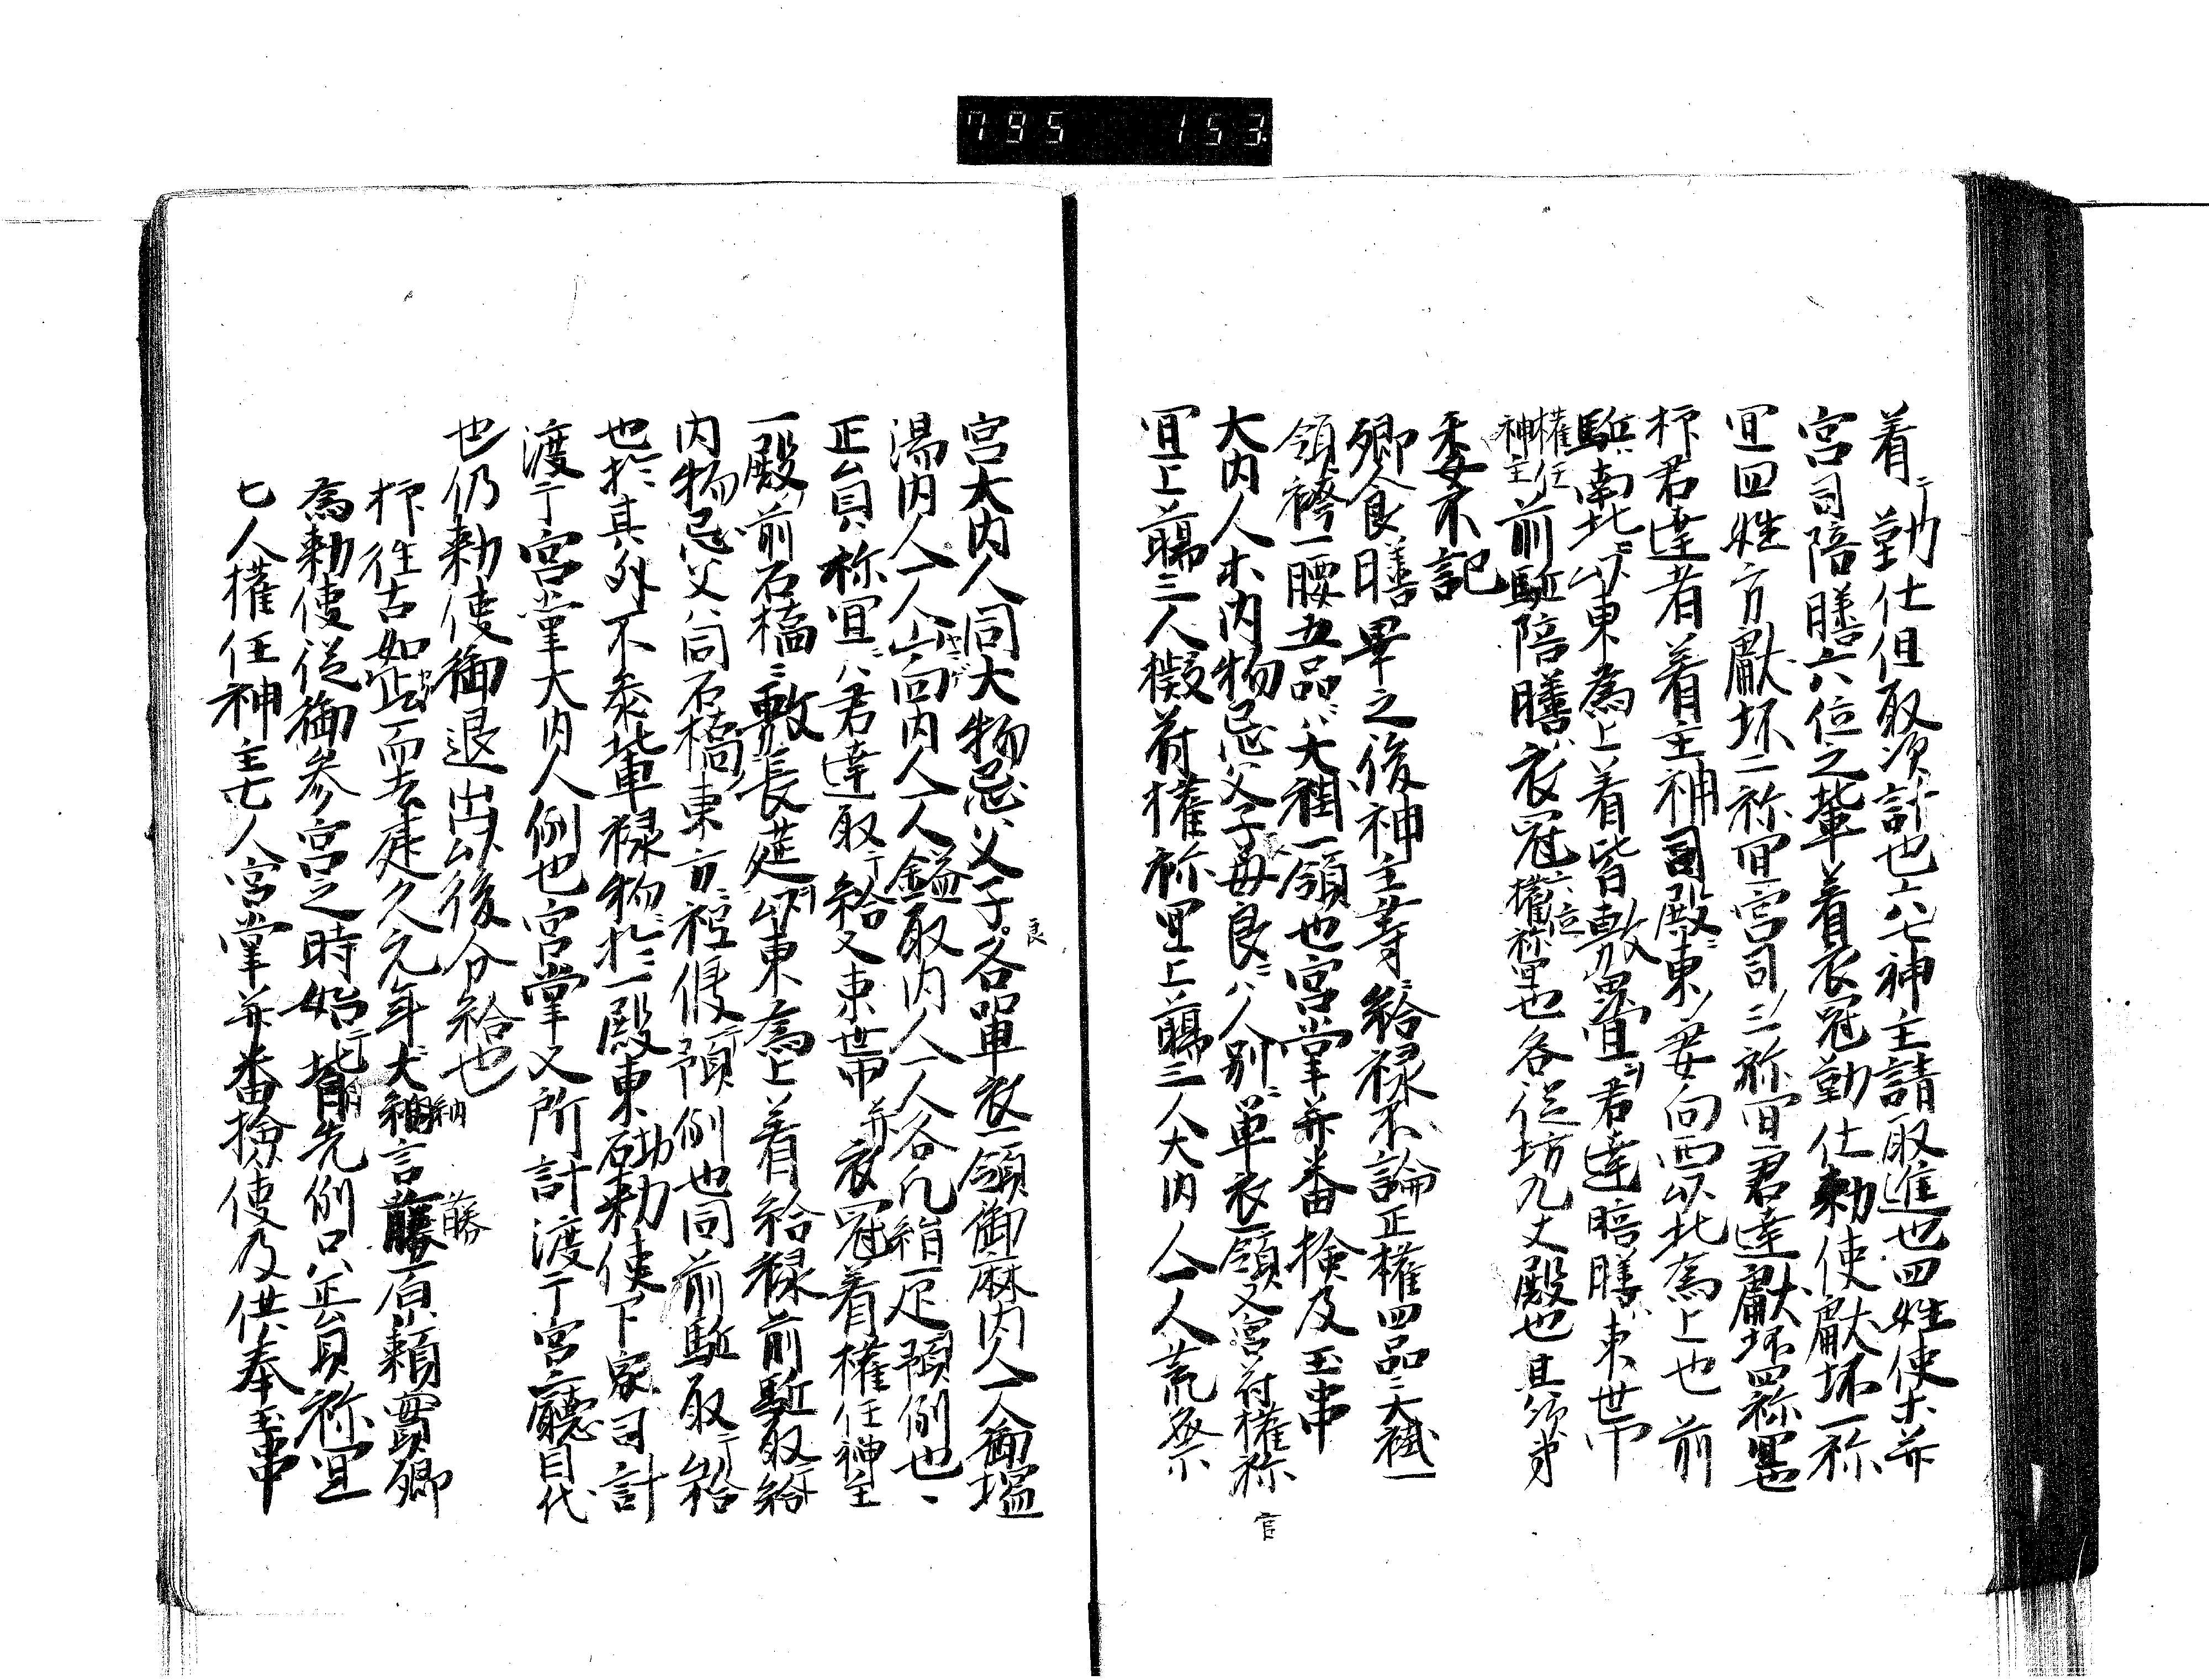 795 153
着テ勤仕但取次計也六七神主請取進也四姓使等并
宮司陪膳六位之輩着衣冠勤仕勅使献坏一祢
宜四姓方献坏二祢宜宮司ノ三祢宜君達献坏四祢宜也
抑君達者着主神司殿東ノ妻向西以北為上也前
駈南北以東為上着皆敷畳君達陪膳束帯
権任神主前駈陪膳衣冠六位権祢宜也各従坊九丈殿也且次第
委不記
郷食膳畢之後神主等給禄不論正権四品大褂一
領袴一腰五品八大褂一領也宮掌并番検及玉串
大内人等内物忌父子母良八人別単衣一領又宮荷権祢
宜上﨟三人擬荷権祢宜上﨟三人大内人一人荒祭
官
宮大内人同大物忌父子各単衣一領御麻内人一人御塩
良
湯内人一人山向内人一人鎰取内人一人各凡絹一疋預例也
正員祢宜八君達取テ給又束帯并衣冠着権任神主
一殿ノ前石橋二敷長莚以東為上着給禄前駈取テ給
内物忌父八同石橋ノ東方祗候預例也同前駈取テ給
也於其外不参輩禄物於一殿東砌勅使下家司計
渡テ宮掌大内人例也宮掌又所計渡于宮廳目代
也仍勅使御退出以後分給也
抑往古如此而去建久元年大納言藤原頼實卿
納 藤
為勅使従御参宮之時始背先例只正員祢宜
七人権任神主七人宮掌并番検使及供奉玉串